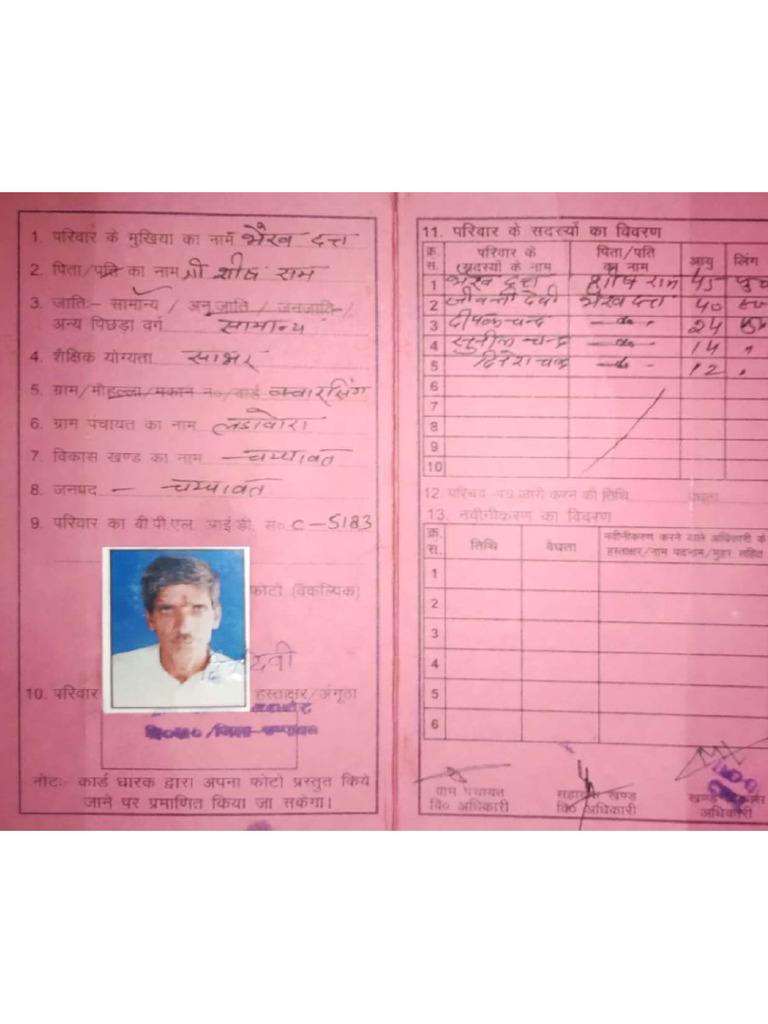 1. परिवार के मुखिया का नाम भैरव दत्त
2. पिता/पति का नाम श्री शीष राम
3. जाति:- सामान्य / अनुजाति / जनजाति /
अन्य पिछड़ा वर्ग सामान्य
4. शैक्षिक योग्यता साक्षर
5. ग्राम/मोहल्ला/मकान न०/वार्ड
6. ग्राम पंचायत का नाम
7. विकास खण्ड का नाम - चम्पावत
8. जनपद - चम्पावत
9. परिवार का बी.पी.एल. आई.डी. स० C-5183
फोटो (वैकल्पिक)
10. परिवार हस्ताक्षर/अंगूठा
वि०ख०/जिला-चम्पावत
नोट:- कार्ड धारक द्वारा अपना फोटो प्रस्तुत किये
जाने पर प्रमाणित किया जा सकेगा।
11. परिवार के सदस्यों का विवरण
क्र. स. परिवार के सदस्यों के नाम पिता/पति का नाम आयु लिंग
1 भैरव दत्त शीष राम 45
2 जीवन्ती देवी भैरव दत्त 40
3 दीपक चन्द्र 24
4 सुनील चन्द्र 14
5 दिनेश चन्द्र 12
6
7
8
9
10
12. परिचय-पत्र जारी करने की तिथि वैधता
13. नवीनीकरण का विवरण
क्र. स. तिथि वैधता नवीनीकरण करने वाले अधिकारी के हस्ताक्षर/नाम पदनाम/मुहर सहित
1
2
3
4
5
6
ग्राम पंचायत वि० अधिकारी
सहायक खण्ड वि० अधिकारी
खण्ड विकास अधिकारी